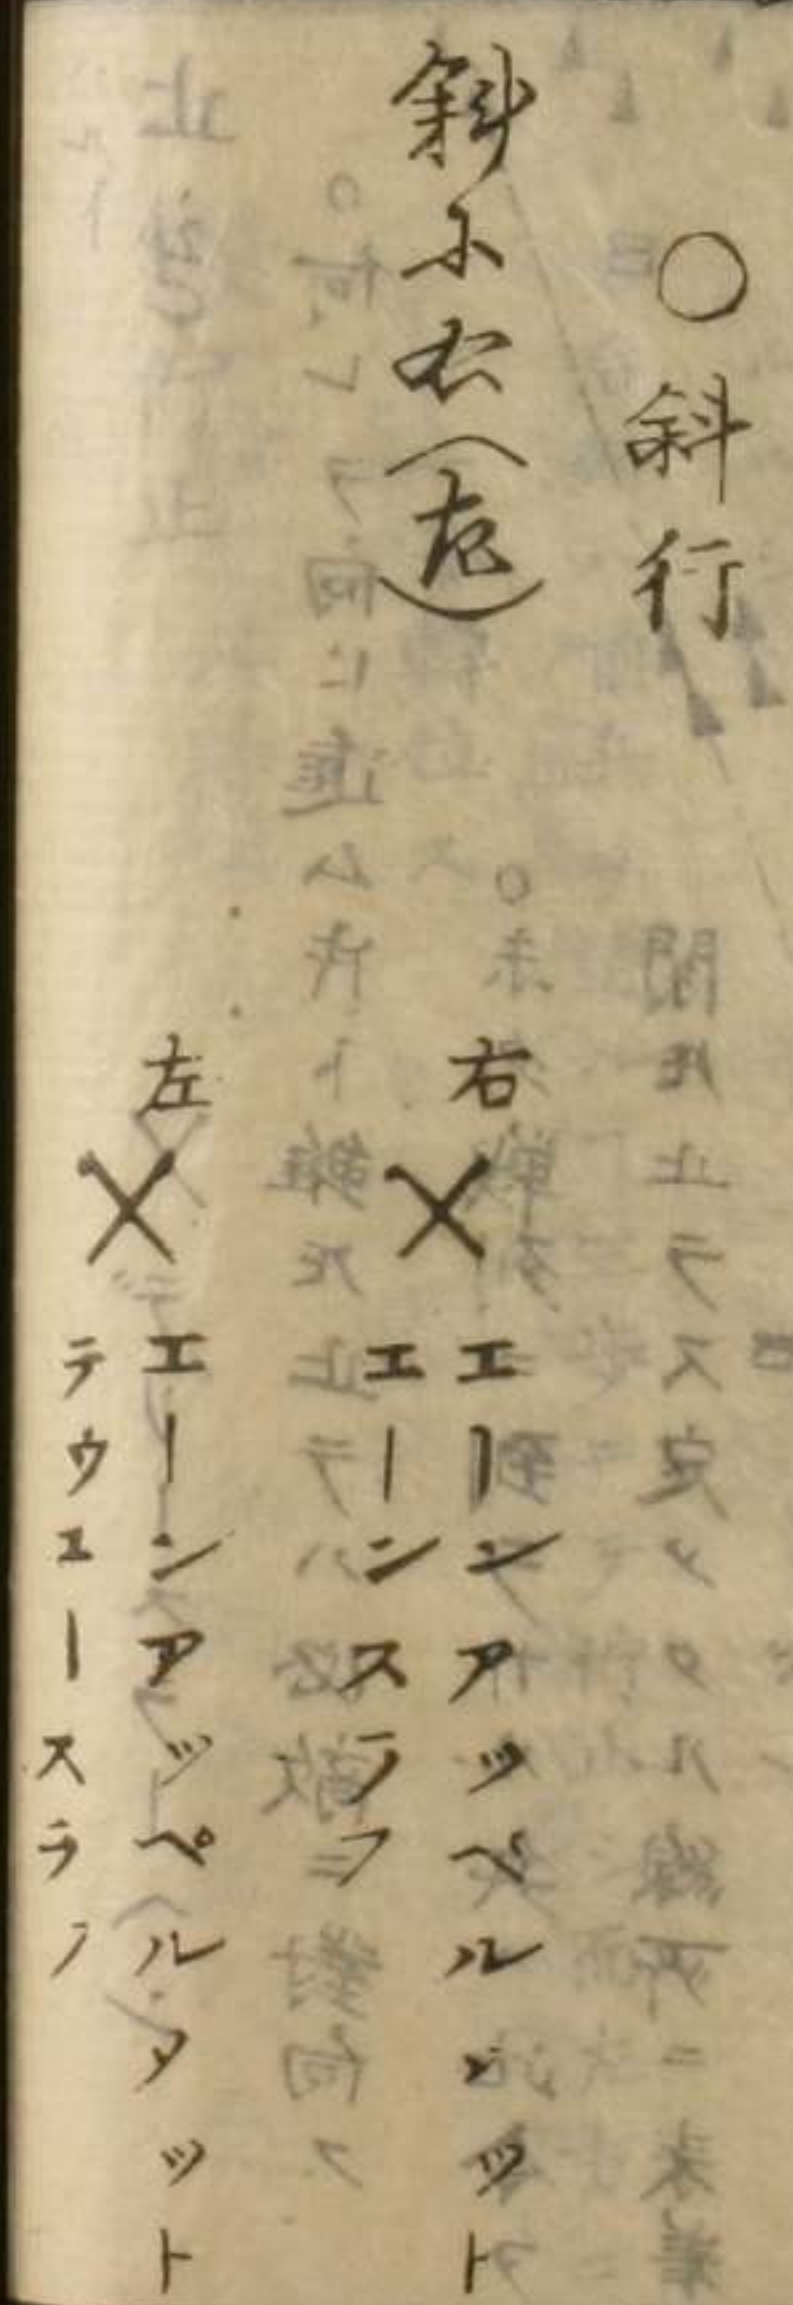 ○斜行
斜に右(左)
右
×
エーンアッペルタット
エーンスラフ
左
×
エーンアッペルタット
テウエースラフ